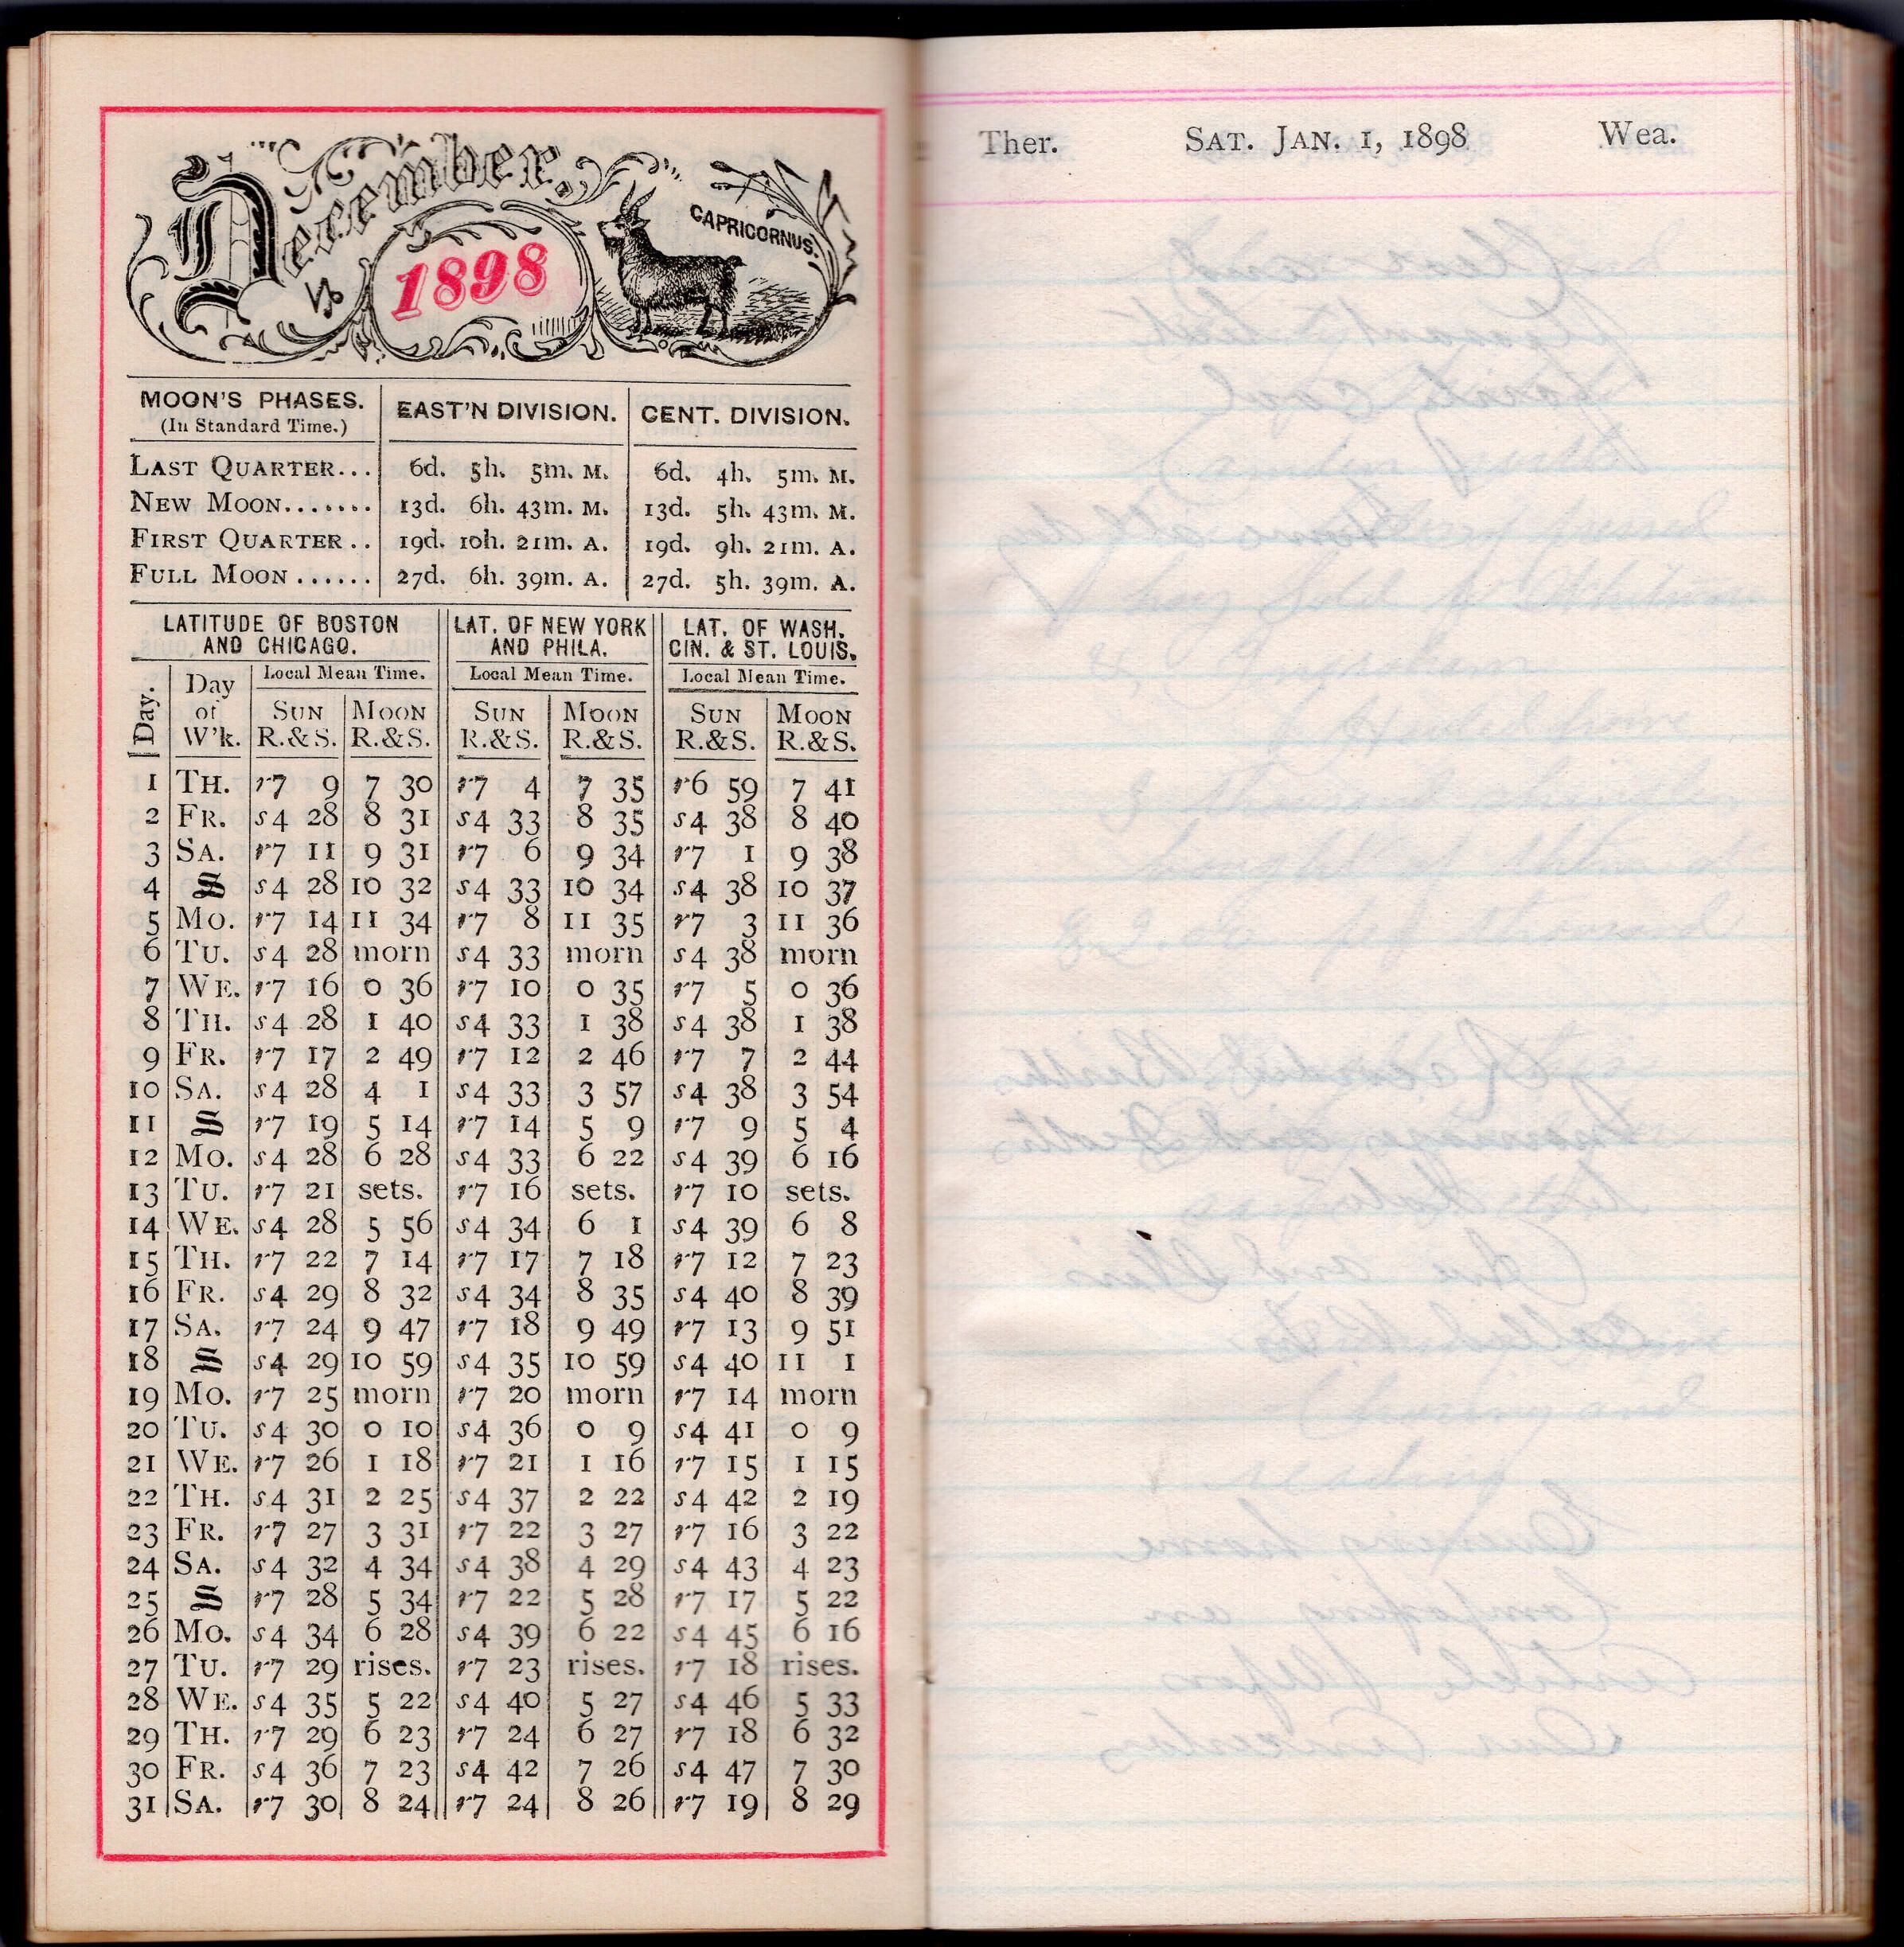 December.
1898
CAPRICORNUS.
MOON'S PHASES. (In Standard Time.) EAST'N DIVISION. CENT. DIVISION.
LAST QUARTER... 6d. 5h. 5m. M. 6d. 4h. 5m. M.
NEW MOON....... 13d. 6h. 43m. M. 13d. 5h. 43m. M.
FIRST QUARTER.. 19d. 10h. 21m. A. 19d. 9h. 21m. A.
FULL MOON ...... 27d. 6h. 39m. A. 27d. 5h. 39m. A.
LATITUDE OF BOSTON AND CHICAGO. LAT. OF NEW YORK AND PHILA. LAT. OF WASH. CIN. & ST. LOUIS.
Local Mean Time. Local Mean Time. Local Mean Time.
Day. Day of W'k. SUN R.&S. MOON R.&S. SUN R.&S. MOON R.&S. SUN R.&S. MOON R.&S.
1 TH. r7 9 7 30 r7 4 7 35 r6 59 7 41
2 FR. s4 28 8 31 s4 33 8 35 s4 38 8 40
3 SA. r7 11 9 31 r7 6 9 34 r7 1 9 38
4 S s4 28 10 32 s4 33 10 34 s4 38 10 37
5 MO. r7 14 11 34 r7 8 11 35 r7 3 11 36
6 TU. s4 28 morn s4 33 morn s4 38 morn
7 WE. r7 16 0 36 r7 10 0 35 r7 5 0 36
8 TH. s4 28 1 40 s4 33 1 38 s4 38 1 38
9 FR. r7 17 2 49 r7 12 2 46 r7 7 2 44
10 SA. s4 28 4 1 s4 33 3 57 s4 38 3 54
11 S r7 19 5 14 r7 14 5 9 r7 9 5 4
12 MO. s4 28 6 28 s4 33 6 22 s4 39 6 16
13 TU. r7 21 sets. r7 16 sets. r7 10 sets.
14 WE. s4 28 5 56 s4 34 6 1 s4 39 6 8
15 TH. r7 22 7 14 r7 17 7 18 r7 12 7 23
16 FR. s4 29 8 32 s4 34 8 35 s4 40 8 39
17 SA. r7 24 9 47 r7 18 9 49 r7 13 9 51
18 S s4 29 10 59 s4 35 10 59 s4 40 11 1
19 MO. r7 25 morn r7 20 morn r7 14 morn
20 TU. s4 30 0 10 s4 36 0 9 s4 41 0 9
21 WE. r7 26 1 18 r7 21 1 16 r7 15 1 15
22 TH. s4 31 2 25 s4 37 2 22 s4 42 2 19
23 FR. r7 27 3 31 r7 22 3 27 r7 16 3 22
24 SA. s4 32 4 34 s4 38 4 29 s4 43 4 23
25 S r7 28 5 34 r7 22 5 28 r7 17 5 22
26 MO. s4 34 6 28 s4 39 6 22 s4 45 6 16
27 TU. r7 29 rises. r7 23 rises. r7 18 rises.
28 WE. s4 35 5 22 s4 40 5 27 s4 46 5 33
29 TH. r7 29 6 23 r7 24 6 27 r7 18 6 32
30 FR. s4 36 7 23 s4 42 7 26 s4 47 7 30
31 SA. r7 30 8 24 r7 24 8 26 r7 19 8 29
Ther. SAT. JAN. 1, 1898 Wea.